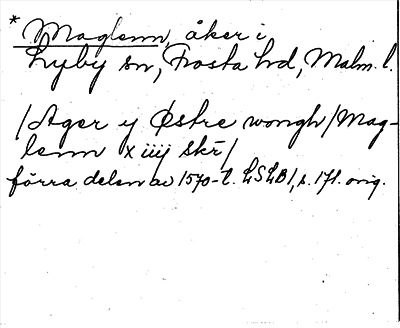 * Maglenn, åker i
Lyby sn, Frosta hd, Malm. l.
/Ager y Østre wongh/Mag-
lenn x iiij skr/
förra delen av 1570-t. LSLB 1, s. 171. orig.